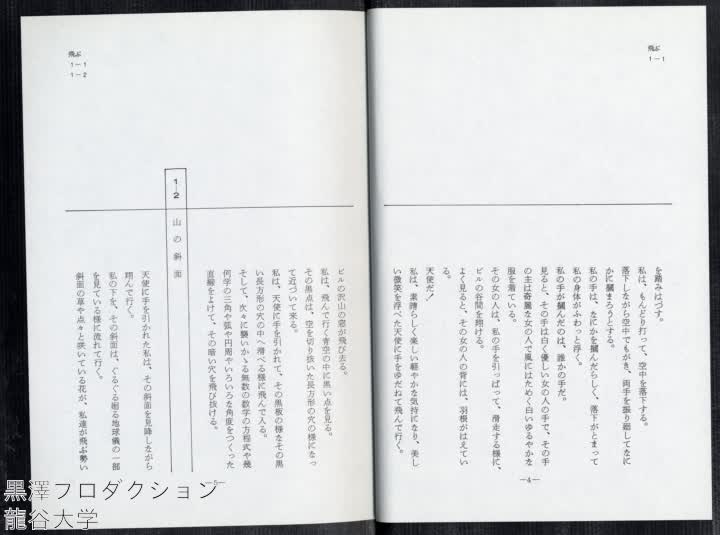 飛ぶ
1－1
を踏みはづす。
私は、もんどり打って、空中を落下する。
落下しながら空中でもがき、両手を振り廻してなに
かに摑まろうとする。
私の手は、なにかを摑んだらしく、落下がとまって
私の身体がふわっと浮く。
私の手が摑んだのは、誰かの手だ。
見ると、その手は白く優しい女の人の手で、その手
の主は奇麗な女の人で風にはためく白いゆるやかな
服を着ている。
その女の人は、私の手を引っぱって、滑走する様に、
ビルの谷間を翔ける。
よく見ると、その女の人の背には、羽根がはえてい
る。
天使だ！
私は、素晴らしく楽しい軽やかな気持になり、美し
い微笑を浮べた天使に手をゆだねて飛んで行く。
—4—
飛ぶ
1－1
1－2
ビルの沢山の窓が飛び去る。
私は、飛んで行く青空の中に黒い点を見る。
その黒点は、空を切り抜いた長方形の穴の様になっ
て近づいて来る。
私は、天使に手を引かれて、その黒板の様なその黒
い長方形の穴の中へ滑べる様に飛んで入る。
そして、次々に襲いかゝる無数の数学の方程式や幾
何学の三角や弧や円周やいろいろな角度をつくった
直線をよけて、その暗い穴を飛び抜ける。
1－2 山の斜面
天使に手を引かれた私は、その斜面を見降しながら
翔んで行く。
私の下を、その斜面は、ぐるぐる廻る地球儀の一部
を見ている様に流れて行く。
斜面の草や点々と咲いている花が、私達が飛ぶ勢い
黒澤プロダクション
龍谷大学